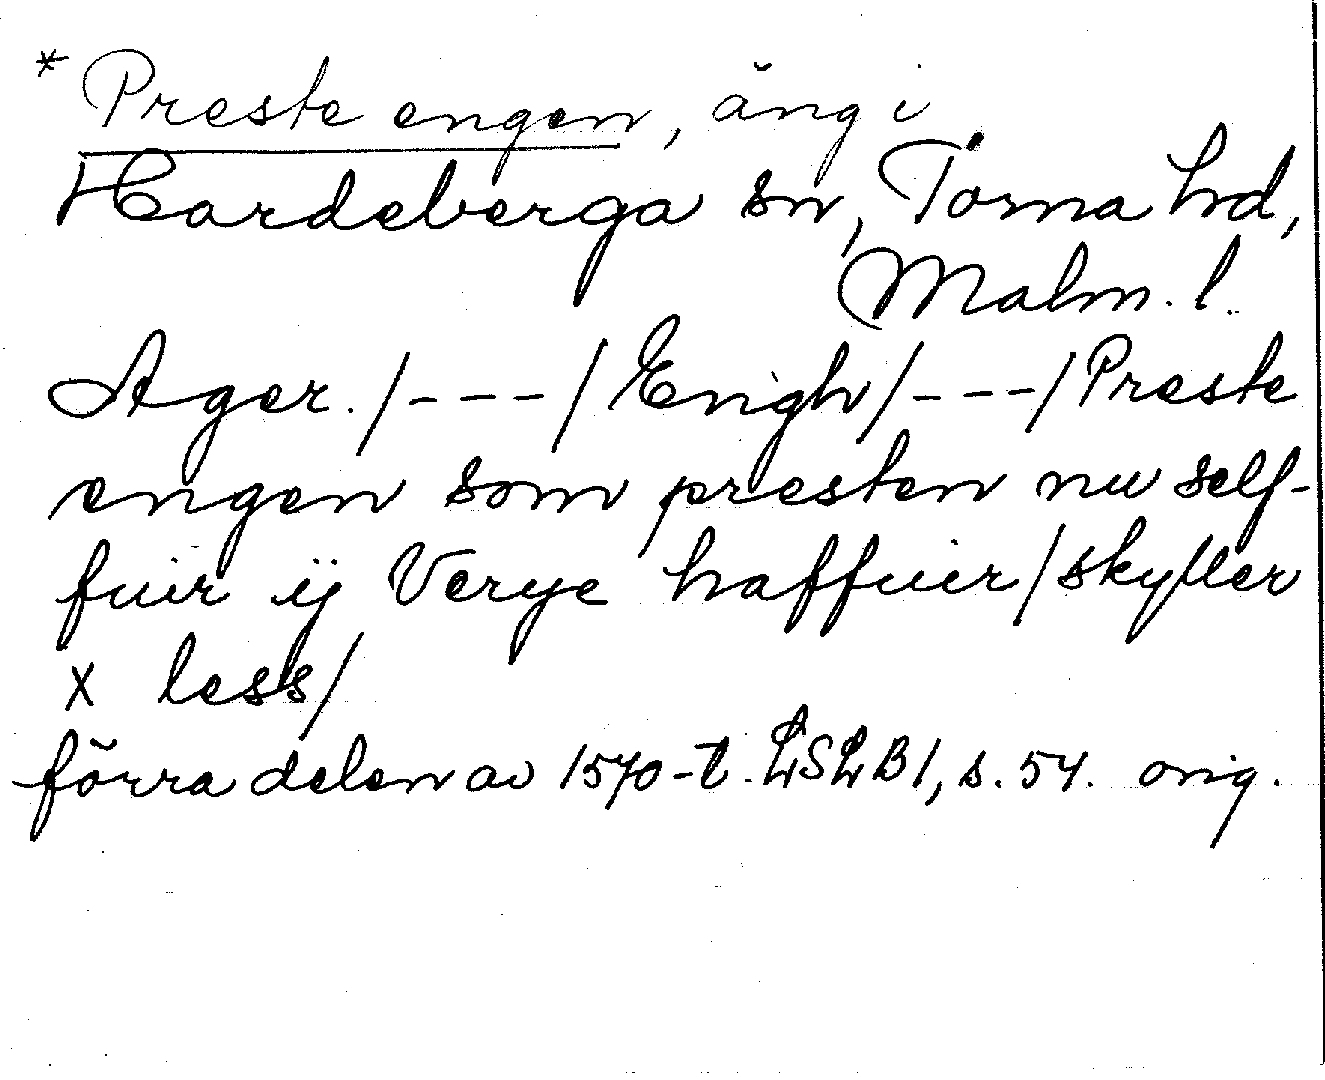 * Preste engen, äng i
Hardeberga sn, Torna hd,
Malm. l.
Ager. /---/ Engh /---/ Preste
engen som presten nu self-
fuir ij Verye haffuer/skyller
x less/
förra delen av 1570-t. LSLB 1, s. 54. orig.